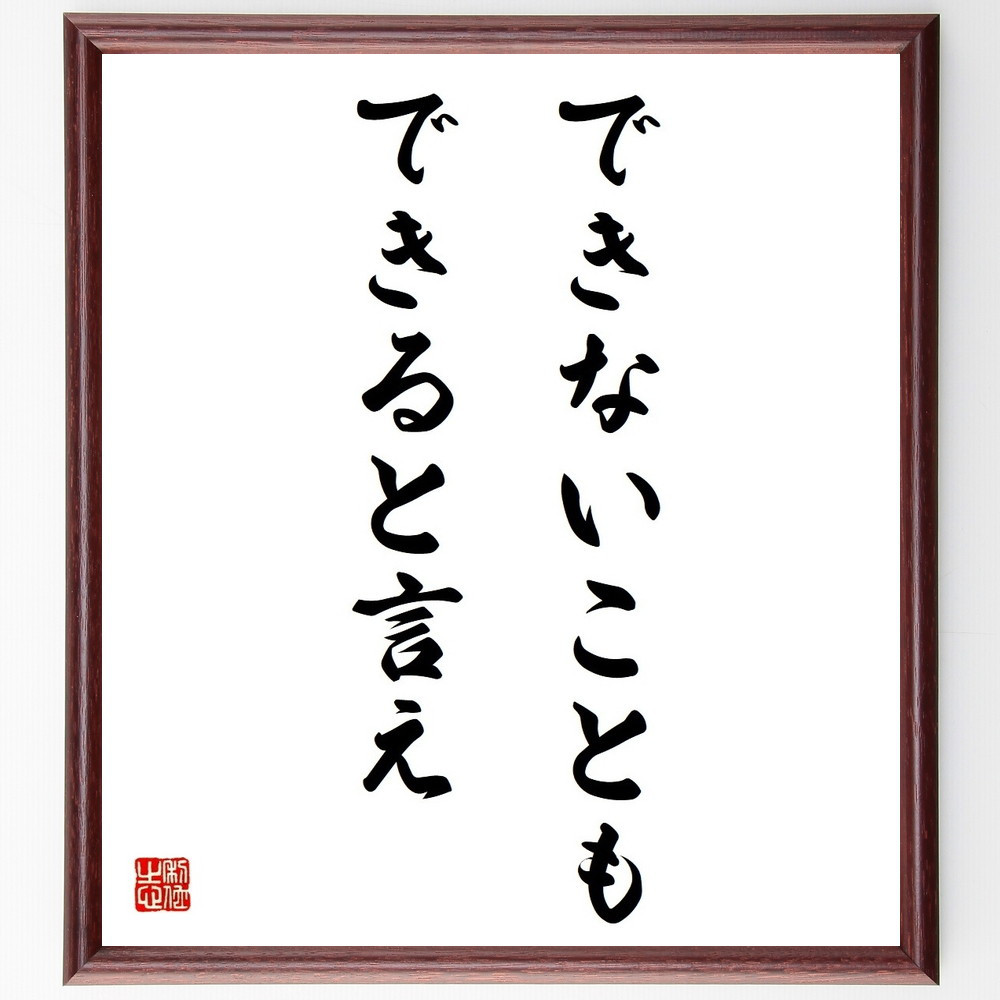 できないことも
できると言え